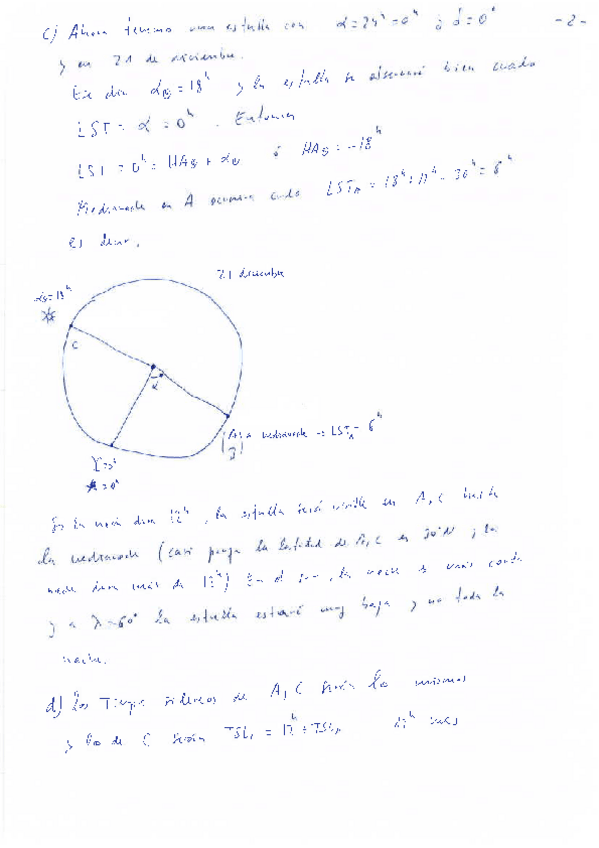 c) Ahora tenemos una estrella con α=24ʰ=0ʰ y δ=0° -2-
y en 21 de diciembre.
Ese día α☉=18ʰ y la estrella se observará bien cuando
LST = α = 0ʰ. Entonces
LST = 0ʰ = HA☉ + α☉ ó HA☉ = -18ʰ
Medianoche en A ocurrirá cuando LST_A = 18ʰ+12ʰ = 30ʰ = 6ʰ
es decir,
21 diciembre
α☉=18ʰ
C
α
A: a medianoche → LST_A = 6ʰ
B
γ=0ʰ
=0ʰ
Si la noche dura 12ʰ, la estrella será visible en A, C hasta
la medianoche (casi porque la latitud de A, C es 30°N y la
noche dura más de 12ʰ) En el la noche es más corta
y a λ=-60° la estrella estará muy baja y no toda la
noche.
d) Los Tiempos sidéreos de A, C serán los mismos
y los de C serán TSL = 12ʰ + TSL